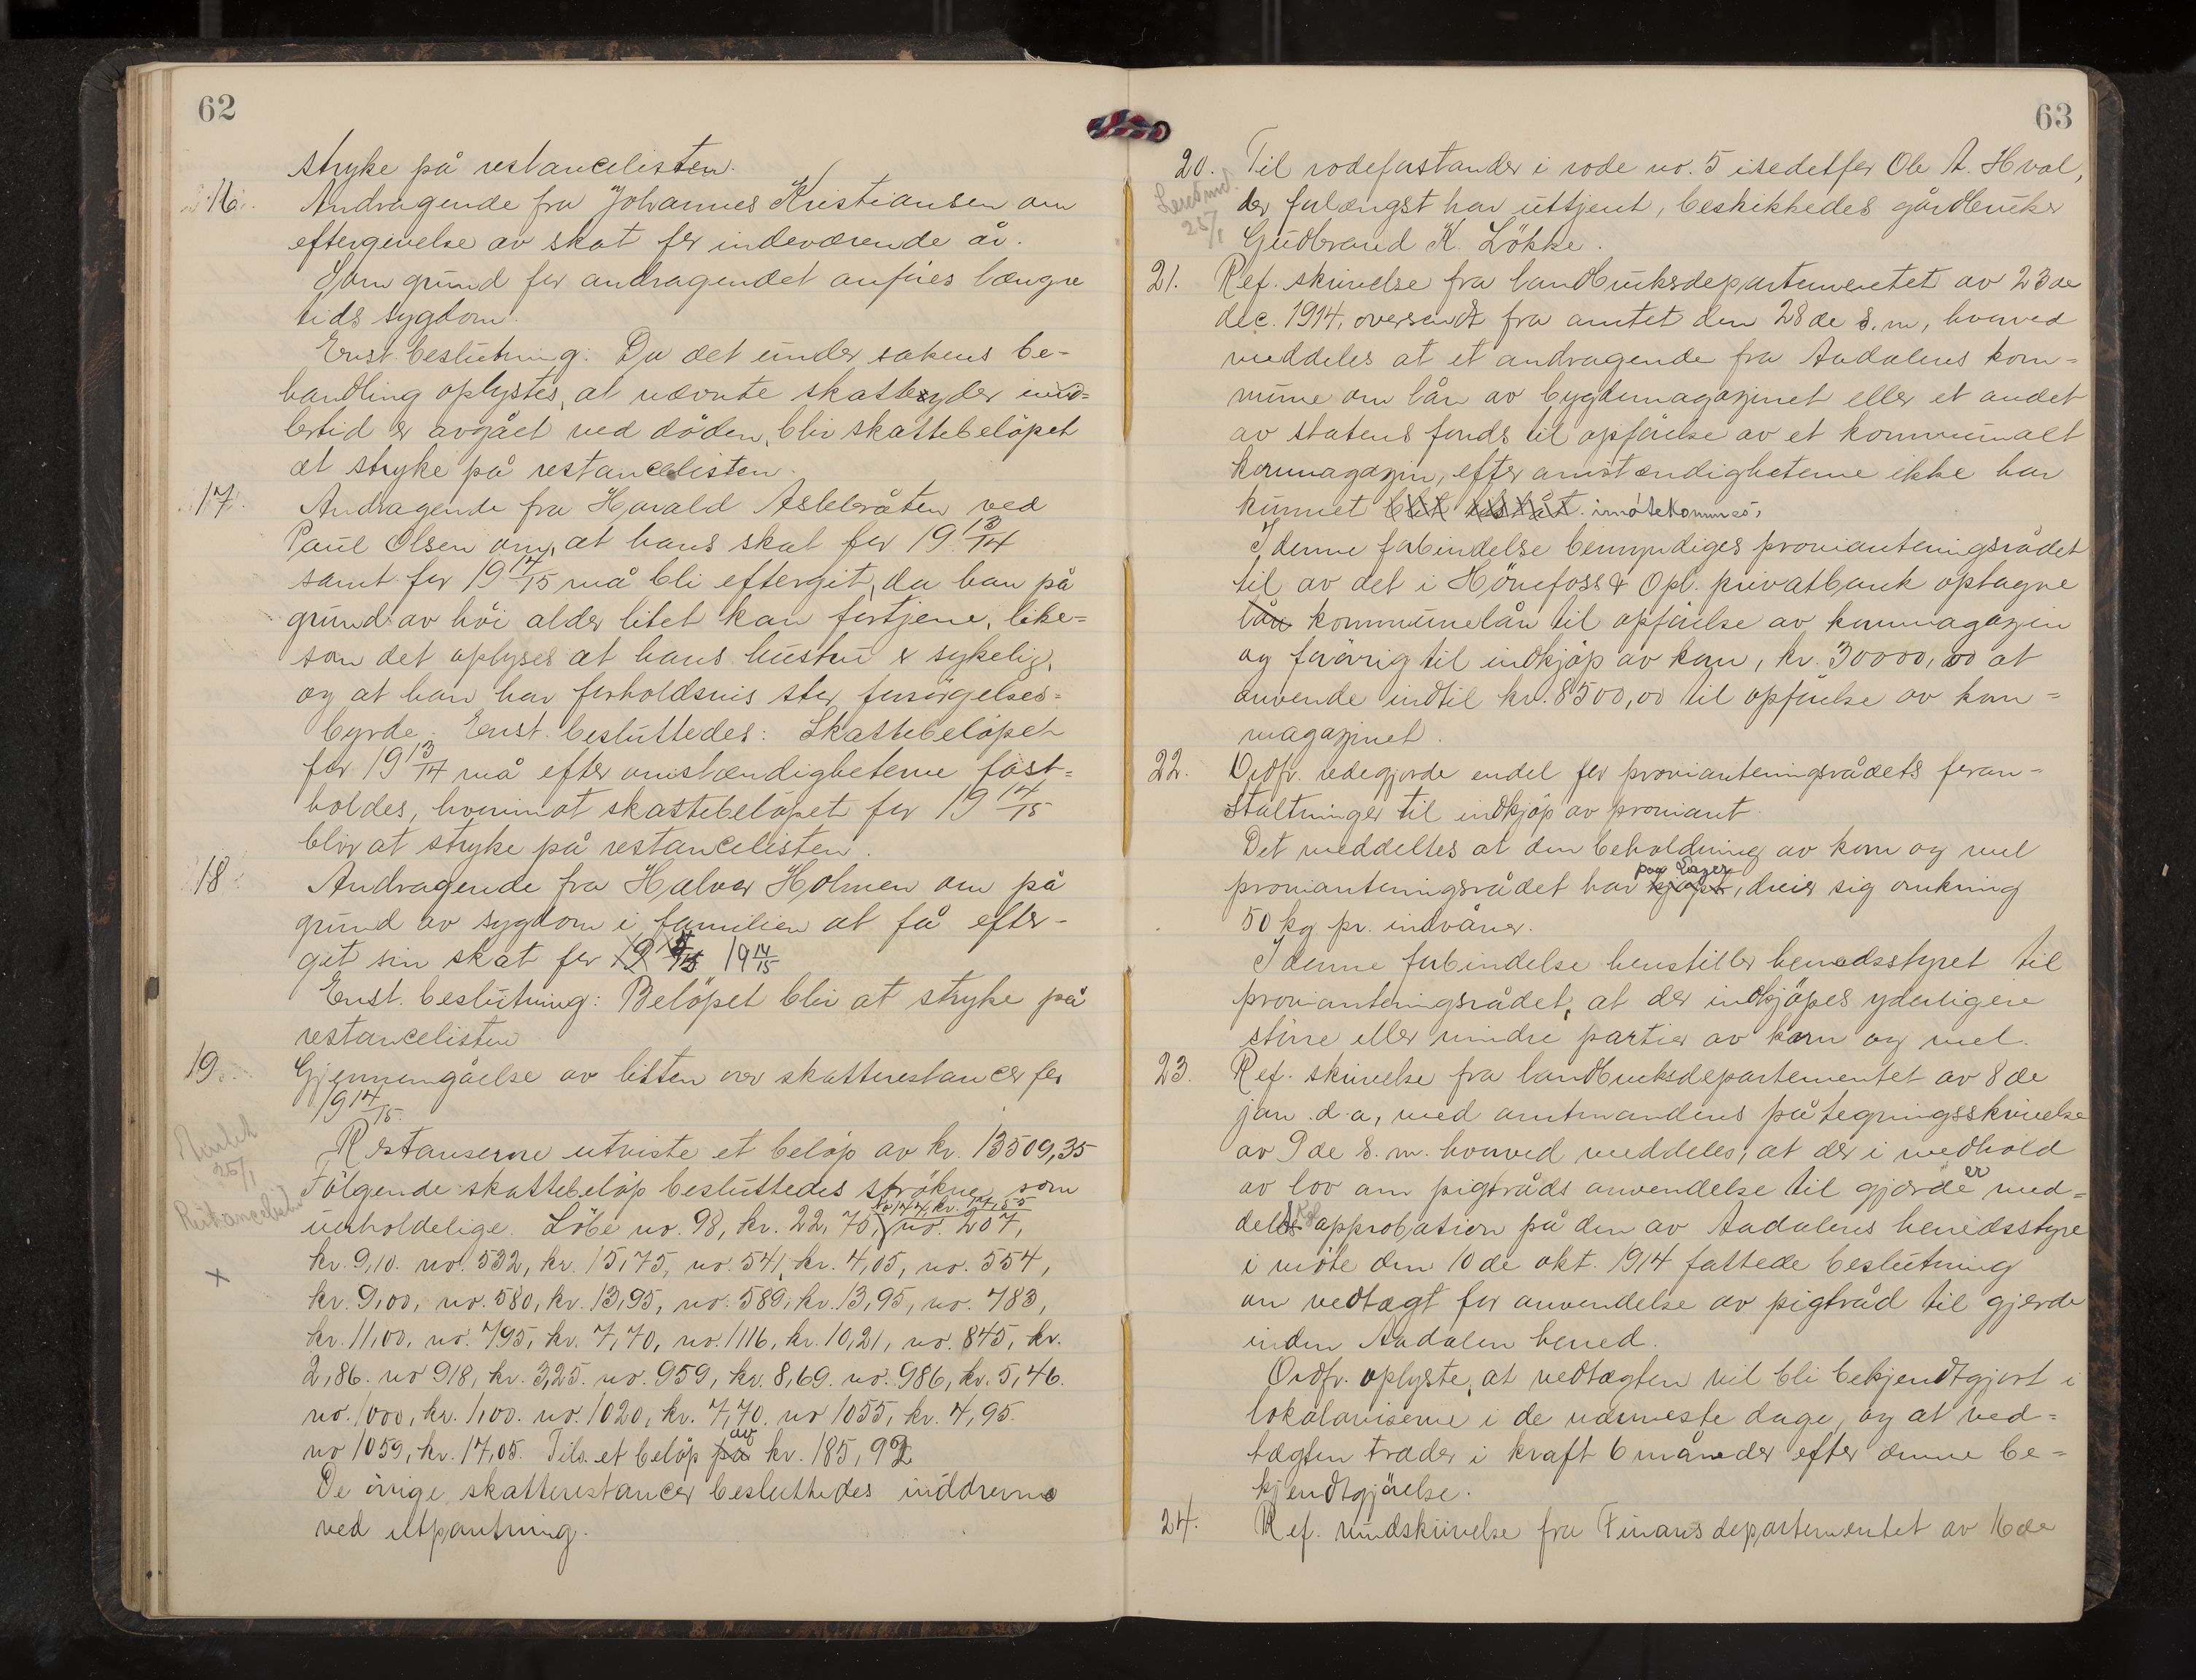 62
stryke på restancelisten.
16. Andragende fra Johannes Kristiansen om
eftergivelse av skat for indeværende år.
Som grund for andragendet anføres længre
tids sygdom.
Enst. beslutning: Da det under sakens be-
handling oplystes, at nævnte skatteyder imid-
lertid er avgået ved døden, blir skattebeløpet
at stryke på restancelisten.
17. Andragende fra Harald Aslebråten ved
Paul Olsen om, at hans skat for 19 13/14
samt for 19 14/15 må bli eftergit, da han på
grund av höi alder litet kan fortjene, like-
som det oplyses at hans hustru er sykelig,
og at han har forholdsvis stor forsörgelses-
byrde. Enst. besluttedes: Skattebelöpet
for 19 13/14 må efter omstændigheterne fast-
holdes, hvorimot skattebelöpet for 19 14/15
blir at stryke på restancelisten.
18. Andragende fra Halvor Holmen om på
grund av sygdom i familien at få efter-
git sin skat for 19 14/15
Enst. beslutning: Belöpet blir at stryke på
restancelisten
19. Gjennemgåelse av listen over skatterestancer for
19 14/15.
Restanserne utviste et belöp av kr. 13509,35
25/1
Fölgende skattebelöp besluttedes strökne som
uerholdelige. Löbe no. 98, kr. 22,75, no. 207,
kr. 9,10. no. 532, kr. 15,75, no. 541, kr. 4,05, no. 554,
x
kr. 9,00, no. 580, kr. 13,95, no. 589, kr. 13,95, no. 783,
kr. 11,00, no. 795, kr. 7,70, no. 1116, kr. 10,21, no. 845, kr.
2,86. no 918, kr. 3,25. no. 959, kr. 8,69. no. 986, kr. 5,46.
no. 1000, kr. 1,00. no. 1020, kr. 7,70. no 1055, kr. 4,95.
no 1059, kr. 17,05. Tils. et belöp på av kr. 185,92
De övrige skatterestancer besluttedes inddrevne
ved utpantning.
63
20. Til rodeforstander i rode no. 5 istedetfor Ole A. Hval,
Lensmd. 25/1
der forlængst har uttjent, beskikkedes gårdbruker
Gudbrand K. Lökke.
21. Ref. skrivelse fra landbruksdepartementet av 23de
dec. 1914, oversendt fra amtet den 28de s.m, hvorved
meddeles at et andragende fra Aadalens kom-
mune om lån av bygdemagazinet eller et andet
av statens fonds til opförelse av et kommunalt
kornmagazin, efter omstændigheterne ikke har
kunnet imötekommes.
I denne forbindelse bemyndiges provianteringsrådet
til av det i Hönefoss & Opl. privatbank optagne
lån kommunelån til opförelse av kornmagazin
og forövrig til indkjöp av korn, kr. 30000,00 at
anvende indtil kr. 8500,00 til opförelse av korn-
magazinet.
22. Ordf. redegjorde endel for provianteringsrådets foran-
staltninger til indkjöp av proviant.
Det meddeltes at den beholdning av korn og mel
provianteringsrådet har kjøpt paa Lager, dreier sig omkring
50 kg. pr. indvåner.
I denne forbindelse henstiller herredsstyret til
provianteringsrådet, at der indkjöpes yderligere
större eller mindre partier av korn og mel.
23. Ref. skrivelse fra landbruksdepartementet av 8de
jan. d.a, med amtmandens påtegningsskrivelse
av 9de s.m. hvorved meddeles, at der i medhold
av lov om pigtråds anvendelse til gjærde er med-
delt approbation på den av Aadalens herredsstyre
i möte den 10de okt. 1914 fattede beslutning
om vedtægt for anvendelse av pigtråd til gjerde
inden Aadalen herred.
Ordf. oplyste, at vedtægten vil bli bekjendtgjort i
lokalaviserne i de nærmeste dage, og at ved-
tægten træder i kraft 6 måneder efter denne be-
kjendtgjörelse.
24. Ref. rundskrivelse fra Finansdepartementet av 16de